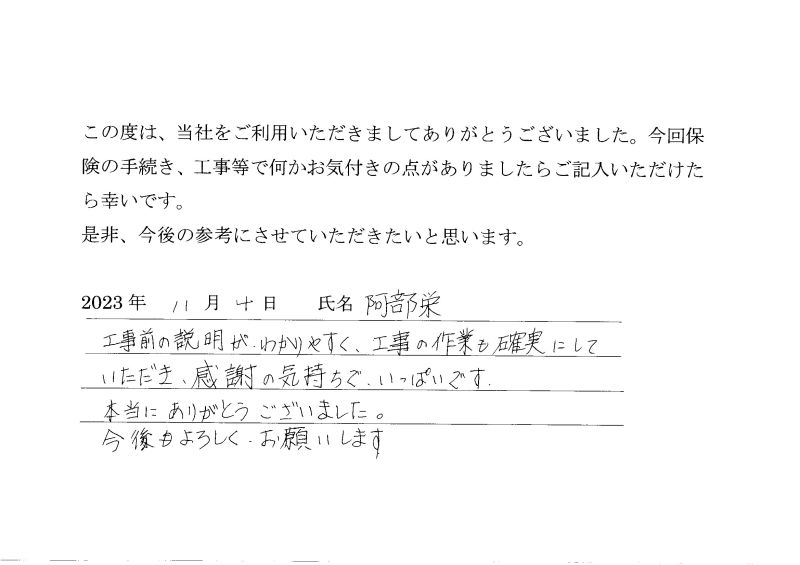 この度は、当社をご利用いただきましてありがとうございました。今回保
険の手続き、工事等で何かお気付きの点がありましたらご記入いただけた
ら幸いです。
是非、今後の参考にさせていただきたいと思います。
2023 年 11 月 十 日 氏名 阿部栄
工事前の説明が、わかりやすく、工事の作業も確実にして
いただき、感謝の気持ちで、いっぱいです.
本当にありがとうございました。
今後もよろしく、お願いします